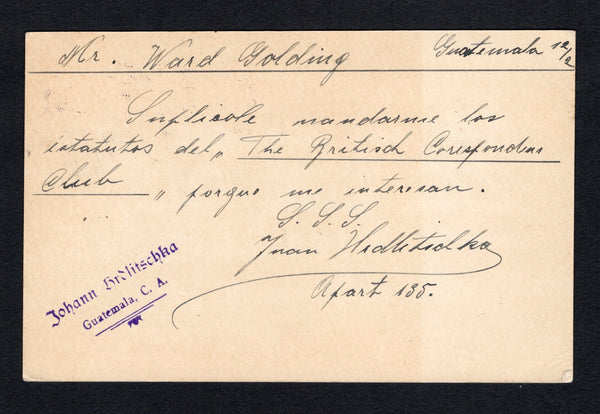 Mr. Ward Golding Guatemala 12/2
Suplicole mandarme los
estatutos del „ The Britisch Corespondens
Club „ porque me interesan.
S. S. S.
Juan Hrdlitschka
Apart 135.
Johann Hrdlitschka
Guatemala, C. A.